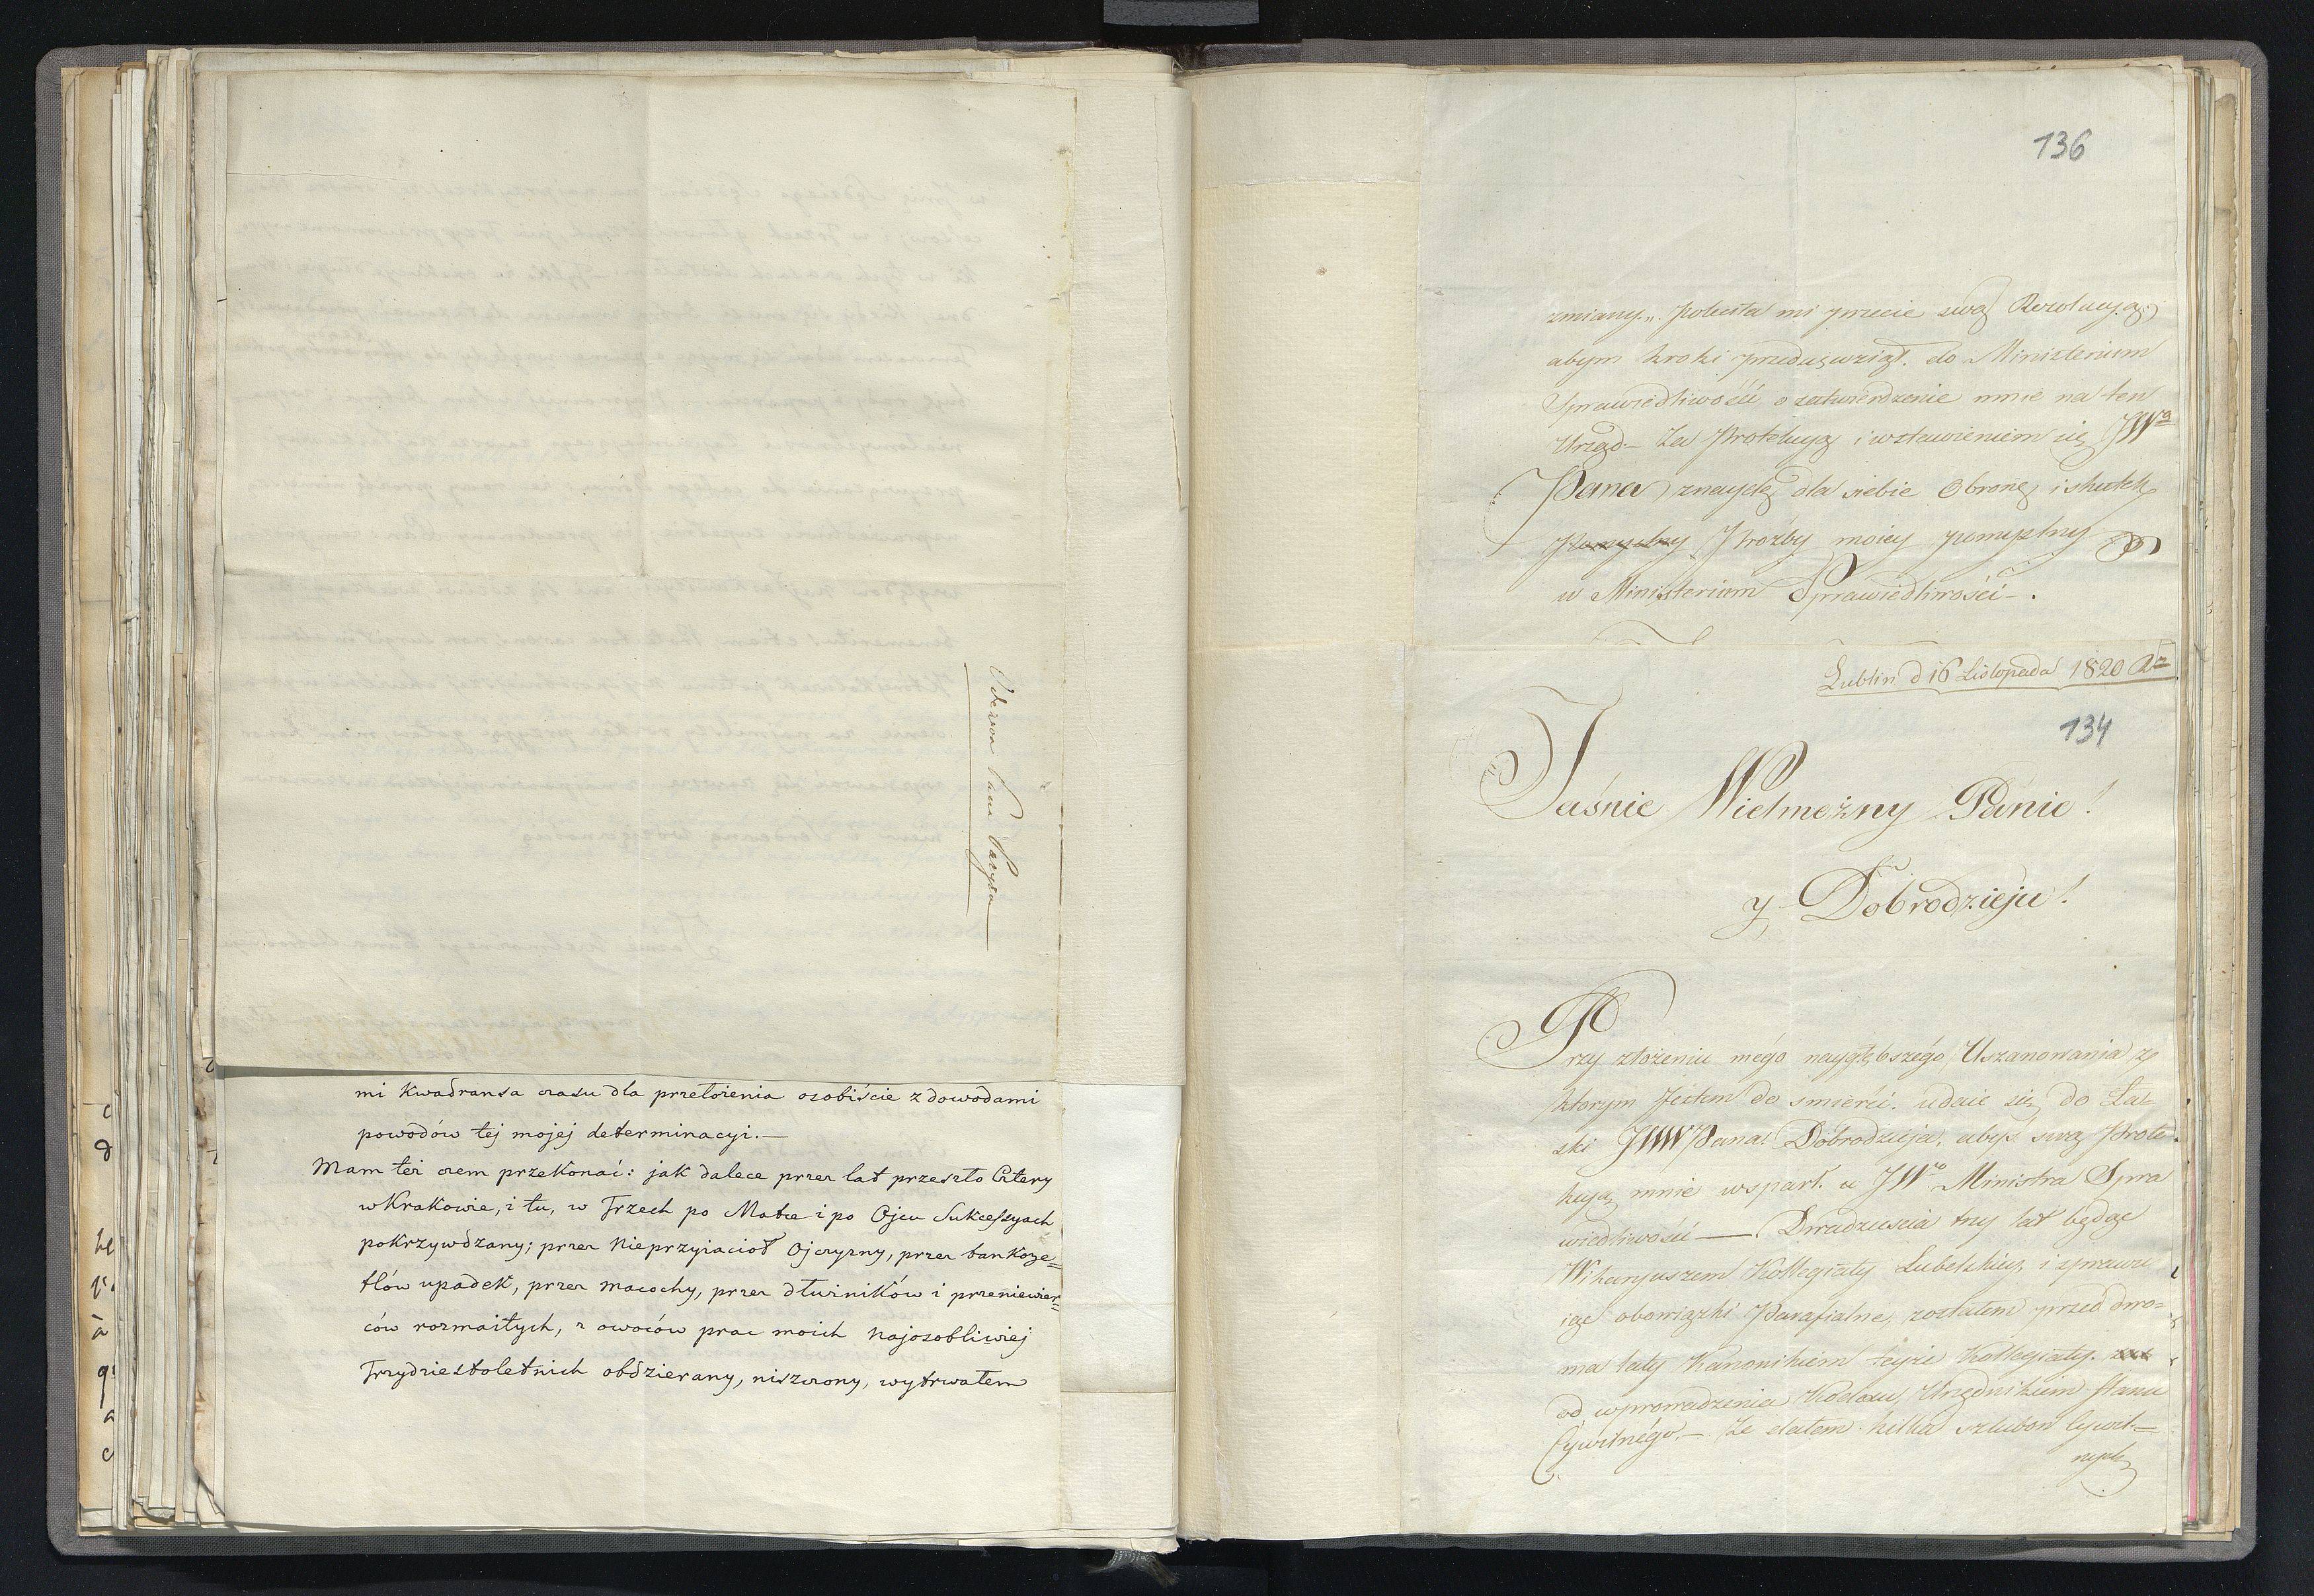 mi Kwadransa czasu dla przełożenia osobiście z dowodami
powodów tej mojej determinacyi.—
Mam też czem przekonać: jak dalece przez lat przeszło Cztery
w Krakowie, i tu, w Trzech po Matce i po Ojcu Sukcessyach
pokrzywdzany; przez Nieprzyiaciół Ojczyzny, przez bankoze=
tlów upadek, przez macochy, przez dłużników i przeniewier=
ców rozmaitych, z owoców prac moich najosobliwiej
Trzydziestoletnich obdzierany, niszczony, wytrwałem
Odezwa Pana
136
zmiany.„ poleciła mi przecie swą Rezolucyą;
abym kroki przedsięwziął. do Ministerium
Sprawiedliwości o zatwierdzenie mnie na ten
Urząd— Za Protekcyą i wstawieniem się JWo
Pana znaydę dla siebie Obronę i skutek
Pomyslny Proźby moiey pomyslny
w Ministerium Sprawiedliwości—.
Lublin d 16 Listopada 1820 Ar
134
Jaśnie Wielmożny Panie!
y Dobrodzieju!
Przy złożeniu mego naygłębszégo Uszanowania z
ktorym Jéstem do smierći. udaie się do Ła=
ski JWW Pana! Dobrodzieja, abyś swą Prote=
kcyą mnie wsparł. u JWo Ministra Spra
wiedliwości —. Dwadziescia trzy lat będąc
Wikaryuszem Kollegiaty Lubelskiey, i sprawu
iąc obowiązki Parafialne, zostałem przed dwo=
ma laty Kanonikiem teyże Kollegiaty.
od wprowadzenia Kodexu, Urzędnikiem Stanu
Cywilnégo.— Że dałem kilka szlubow Cywil=
nych